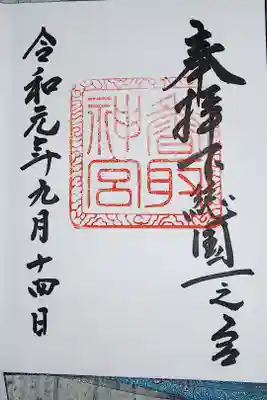 奉拝 下総国一之宮
香取
神宮
令和元年九月十四日